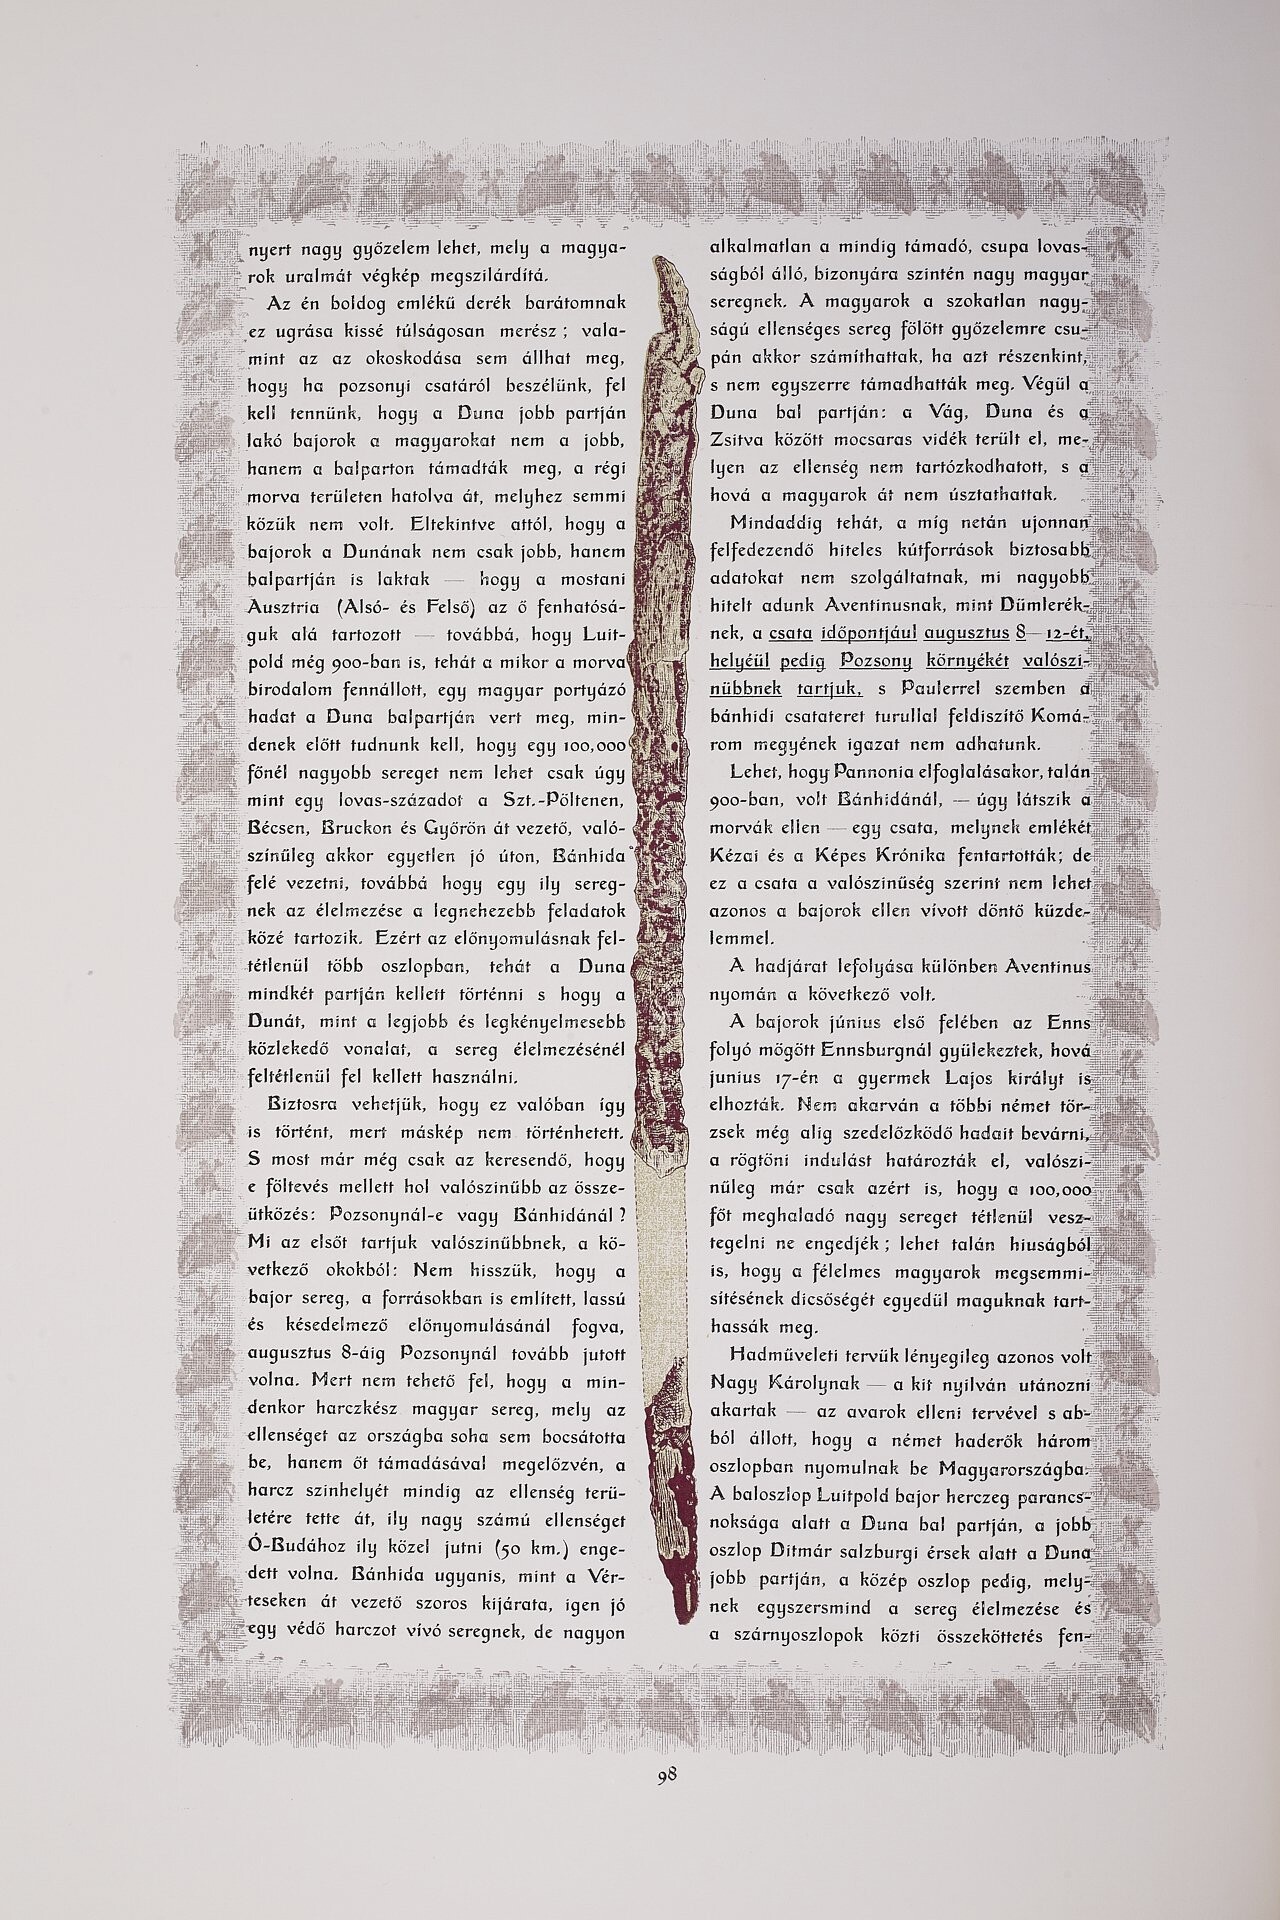 nyert nagy győzelem lehet, mely a magya-
rok uralmát végkép megszilárdítá.
Az én boldog emlékű derék barátomnak
ez ugrása kissé túlságosan merész; vala-
mint az az okoskodása sem állhat meg,
hogy ha pozsonyi csatáról beszélünk, fel
kell tennünk, hogy a Duna jobb partján
lakó bajorok a magyarokat nem a jobb,
hanem a balparton támadták meg, a régi
morva területen hatolva át, melyhez semmi
közük nem volt. Eltekintve attól, hogy a
bajorok a Dunának nem csak jobb, hanem
balpartján is laktak — hogy a mostani
Ausztria (Alsó- és Felső) az ő fenhatósá-
guk alá tartozott — továbbá, hogy Luit-
pold még 900-ban is, tehát a mikor a morva
birodalom fennállott, egy magyar portyázó
hadat a Duna balpartján vert meg, min-
denek előtt tudnunk kell, hogy egy 100,000
főnél nagyobb sereget nem lehet csak úgy
mint egy lovas-századot a Szt.-Pöltenen,
Bécsen, Bruckon és Győrön át vezető, való-
színűleg akkor egyetlen jó úton, Bánhida
felé vezetni, továbbá hogy egy ily sereg-
nek az élelmezése a legnehezebb feladatok
közé tartozik. Ezért az előnyomulásnak fel-
tétlenül több oszlopban, tehát a Duna
mindkét partján kellett történni s hogy a
Dunát, mint a legjobb és legkényelmesebb
közlekedő vonalat, a sereg élelmezésénél
feltétlenül fel kellett használni.
Biztosra vehetjük, hogy ez valóban így
is történt, mert máskép nem történhetett.
S most már még csak az keresendő, hogy
e föltevés mellett hol valószinübb az össze-
ütközés: Pozsonynál-e vagy Bánhidánál?
Mi az elsőt tartjuk valószinűbbnek, a kö-
vetkező okokból: Nem hisszük, hogy a
bajor sereg, a forrásokban is említett, lassú
és késedelmező előnyomulásánál fogva,
augusztus 8-áig Pozsonynál tovább jutott
volna. Mert nem tehető fel, hogy a min-
denkor harczkész magyar sereg, mely az
ellenséget az országba soha sem bocsátotta
be, hanem őt támadásával megelőzvén, a
harcz szinhelyét mindig az ellenség terü-
letére tette át, ily nagy számú ellenséget
Ó-Budához ily közel jutni (50 km.) enge-
dett volna. Bánhida ugyanis, mint a Vér-
teseken át vezető szoros kijárata, igen jó
egy védő harczot vívó seregnek, de nagyon
alkalmatlan a mindig támadó, csupa lovas-
ságból álló, bizonyára szintén nagy magyar
seregnek. A magyarok a szokatlan nagy-
ságú ellenséges sereg fölött győzelemre csu-
pán akkor számíthattak, ha azt részenkint,
s nem egyszerre támadhatták meg. Végül a
Duna bal partján: a Vág, Duna és a
Zsitva között mocsaras vidék terült el, me-
lyen az ellenség nem tartózkodhatott, s a
hová a magyarok át nem úsztathattak.
Mindaddig tehát, a míg netán ujonnan
felfedezendő hiteles kútforrások biztosabb
adatokat nem szolgáltatnak, mi nagyobb
hitelt adunk Aventinusnak, mint Dümlerék-
nek, a csata időpontjául augusztus 8—12-ét,
helyéül pedig Pozsony környékét valószi-
nübbnek tartjuk, s Paulerrel szemben a
bánhidi csatateret turullal feldiszítő Komá-
rom megyének igazat nem adhatunk.
Lehet, hogy Pannonia elfoglalásakor, talán
900-ban, volt Bánhidánál, — úgy látszik a
morvák ellen — egy csata, melynek emlékét
Kézai és a Képes Krónika fentartották; de
ez a csata a valószinűség szerint nem lehet
azonos a bajorok ellen vívott döntő küzde-
lemmel.
A hadjárat lefolyása különben Aventinus
nyomán a következő volt.
A bajorok június első felében az Enns
folyó mögött Ennsburgnál gyülekeztek, hová
junius 17-én a gyermek Lajos királyt is
elhozták. Nem akarván a többi német tör-
zsek még alig szedelőzködő hadait bevárni,
a rögtöni indulást határozták el, valószi-
nűleg már csak azért is, hogy a 100,000
főt meghaladó nagy sereget tétlenül vesz-
tegelni ne engedjék; lehet talán hiuságból
is, hogy a félelmes magyarok megsemmi-
sítésének dicsőségét egyedül maguknak tart-
hassák meg.
Hadműveleti tervük lényegileg azonos volt
Nagy Károlynak — a kit nyilván utánozni
akartak — az avarok elleni tervével s ab-
ból állott, hogy a német haderők három
oszlopban nyomulnak be Magyarországba.
A baloszlop Luitpold bajor herczeg parancs-
noksága alatt a Duna bal partján, a jobb
oszlop Ditmár salzburgi érsek alatt a Duna
jobb partján, a közép oszlop pedig, mely-
nek egyszersmind a sereg élelmezése és
a szárnyoszlopok közti összeköttetés fen-
98